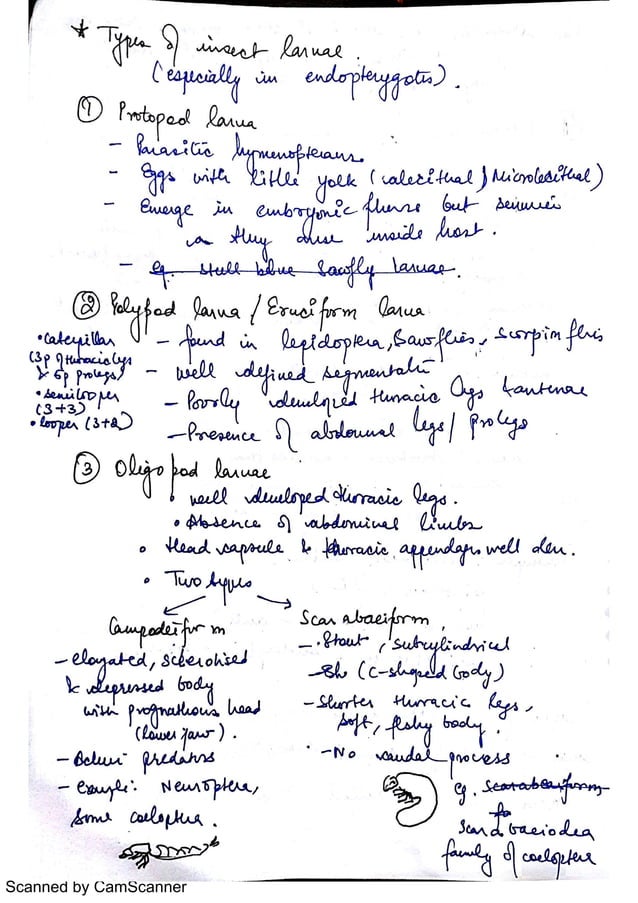 * Types of insect larvae.
(especially in endopterygotes).
① Protopod larva
- Parasitic hymenopterans.
- Eggs with little yolk (alecithal / Microlecithal)
- Emerge in embryonic phase but survive
as they arise inside host.
- eg. stull blue Sawfly larvae.
② Polypod larva / Eruciform larva
- found in lepidoptera, Sawflies, Scorpion flies
- well defined segmentatn
- Poorly developed thoracic legs & antenae
- Presence of abdominal legs / prolegs
• Caterpillar
(3p of thoracic legs
& 5p prolegs)
• semilooper
(3+3)
• looper (3+2)
③ Oligopod larvae
• well developed thoracic legs.
• Absence of abdominal limbs
• Head capsule & thoracic appendages well dev.
• Two types
Campodeiform
- elogated, sclerotised
& depressed body
with prognathous head
(lower jaw).
- Active predators
- example: Neuroptera,
some coeloptera.
Scarabaeiform
- Stout, subcylindrical
- Sh (C-shaped body)
- Shorter thoracic legs,
soft, fleshy body.
- No caudal process
eg. Scarabaeiform
Scarabaeiodea
family of coeloptera
Scanned by CamScanner